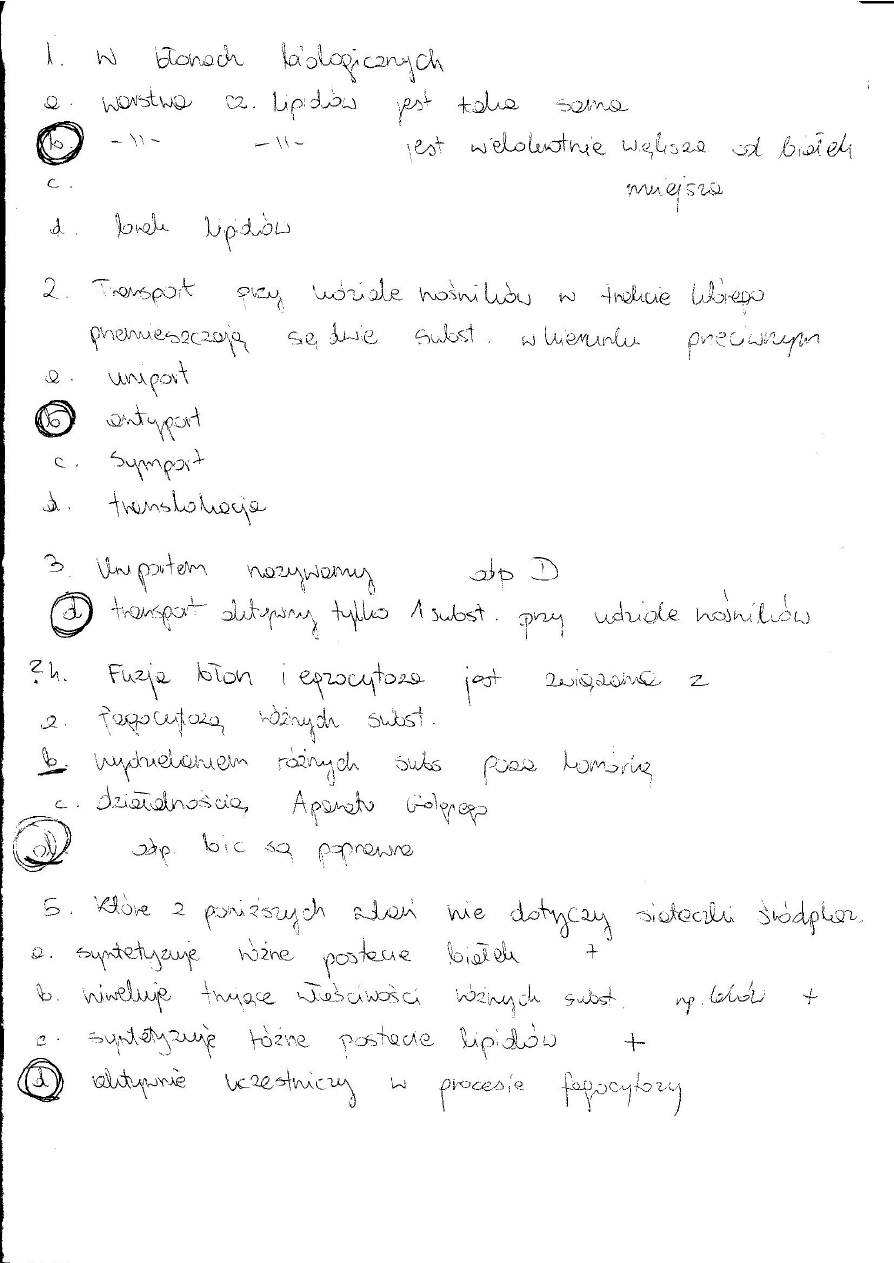 1. W błonach biologicznych
a. warstwa cz. lipidów jest taka sama
b. -\\- -\\- jest wielokrotnie większa od białek
c. mniejsza
d. brak lipidów
2. Transport przy udziale nośników w trakcie którego
przemieszczają się dwie subst. w kierunku przeciwnym
a. uniport
b. antyport
c. symport
d. translokacja
3. Uniportem nazywamy odp D
d transport aktywny tylko 1 subst. przy udziale nośników
?4. Fuzja błon i egzocytoza jest związana z
a. fagocytozą różnych subst.
b. wydzielaniem różnych subs poza komórkę
c. działalnością Aparatu Golgiego
d. odp. b i c są poprawne
5. Które z poniższych zdań nie dotyczy siateczki śródplaz.
a. syntetyzuje różne postacie białek +
b. niweluje trujące właściwości różnych subst. np. leków +
c. syntetyzuje różne postacie lipidów +
d aktywnie uczestniczy w procesie fagocytozy